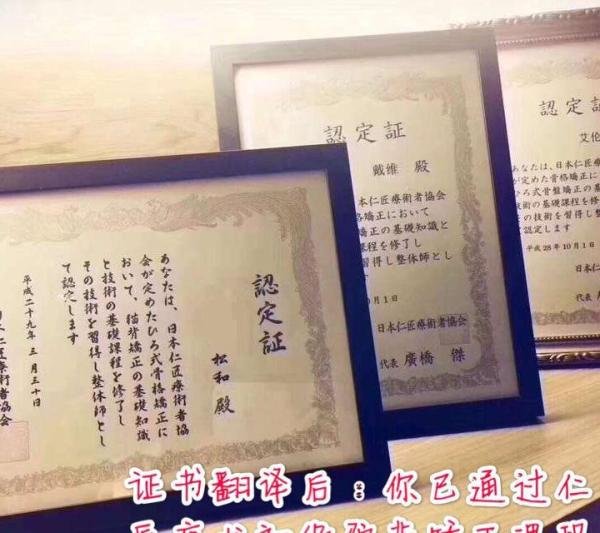 認定証
松和 殿
あなたは、日本仁匠療術者協
会が定めたひろ式骨格矯正に
おいて、猫背矯正の基礎知識
と技術の基礎課程を修了し
その技術を習得し整体師とし
て認定します
平成二十九年 三月三十日
日本仁匠療術者協会
認定証
戴维 殿
本仁匠療術者協会
格矯正において
矯正の基礎知識と
課程を修了し
習得し整体師とし
月1日
日本仁匠療術者協会
代表 廣橋 傑
認定証
艾伦
あなたは、日本仁匠
が定めた骨格矯正に
ひろ式骨盤矯正の
技術の基礎課程を修
の技術を習得し整
て認定します
平成28年10月1
日本仁
代表
证书翻译后：你已通过仁